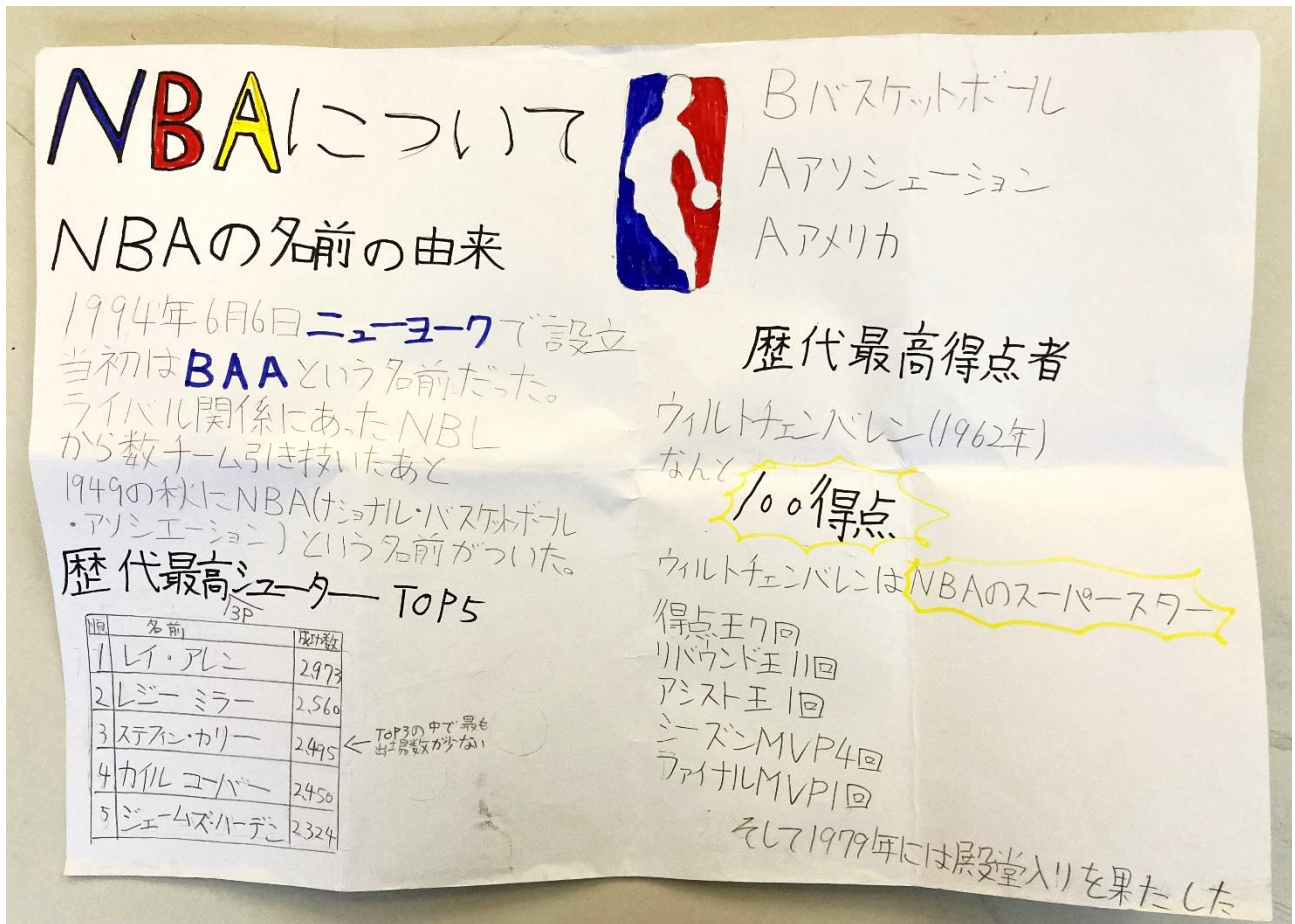 NBAについて
NBAの名前の由来
1994年6月6日ニューヨークで設立
当初はBAAという名前だった。
ライバル関係にあったNBL
から数チーム引き技いたあと
1949の秋にNBA(ナショナル・バスケットボール
・アソシエーション)という名前がついた。
歴代最高シューター TOP5
3P
順 名前 成功数
1 レイ・アレン 2,973
2 レジー ミラー 2,560
3 ステフィン・カリー 2,495
←TOP3の中で最も
出場数が少ない
4 カイル コーバー 2,450
5 ジェームズ・ハーデン 2,324
Bバスケットボール
Aアソシェーション
Aアメリカ
歴代最高得点者
ウィルトチェンバレン(1962年)
なんと
100得点
ウィルトチェンバレンはNBAのスーパースター
得点王7回
リバウンド王11回
アシスト王1回
シーズンMVP4回
ファイナルMVP1回
そして1979年には殿堂入りを果たした